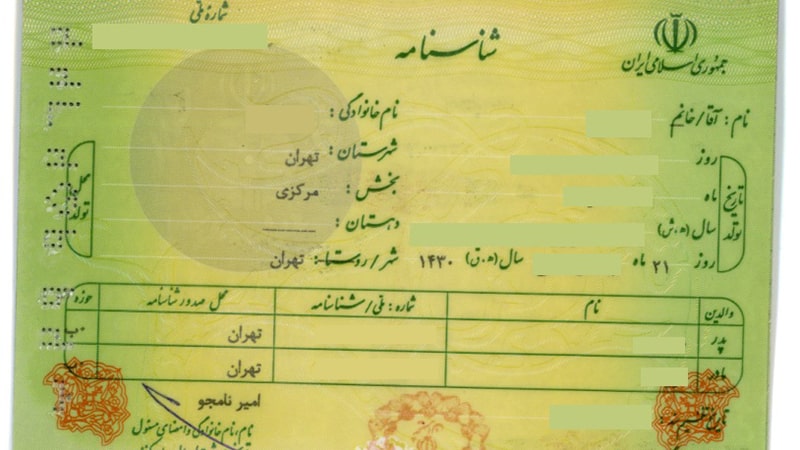 شماره ملی
شناسنامه
جمهوری اسلامی ایران
نام: آقا/خانم
نام خانوادگی:
تاریخ تولد
روز
ماه
سال (ه.ش)
روز ۲۱ ماه سال (ه.ق) ۱۴۳۰
محل تولد
شهرستان: تهران
بخش: مرکزی
دهستان: ــــــــ
شهر/روستا: تهران
والدین نام شماره: ملی/شناسنامه محل صدور شناسنامه حوزه
پدر تهران
مادر تهران
امیر نامجو
نام، نام خانوادگی و امضای مسئول
تاریخ تنظیم